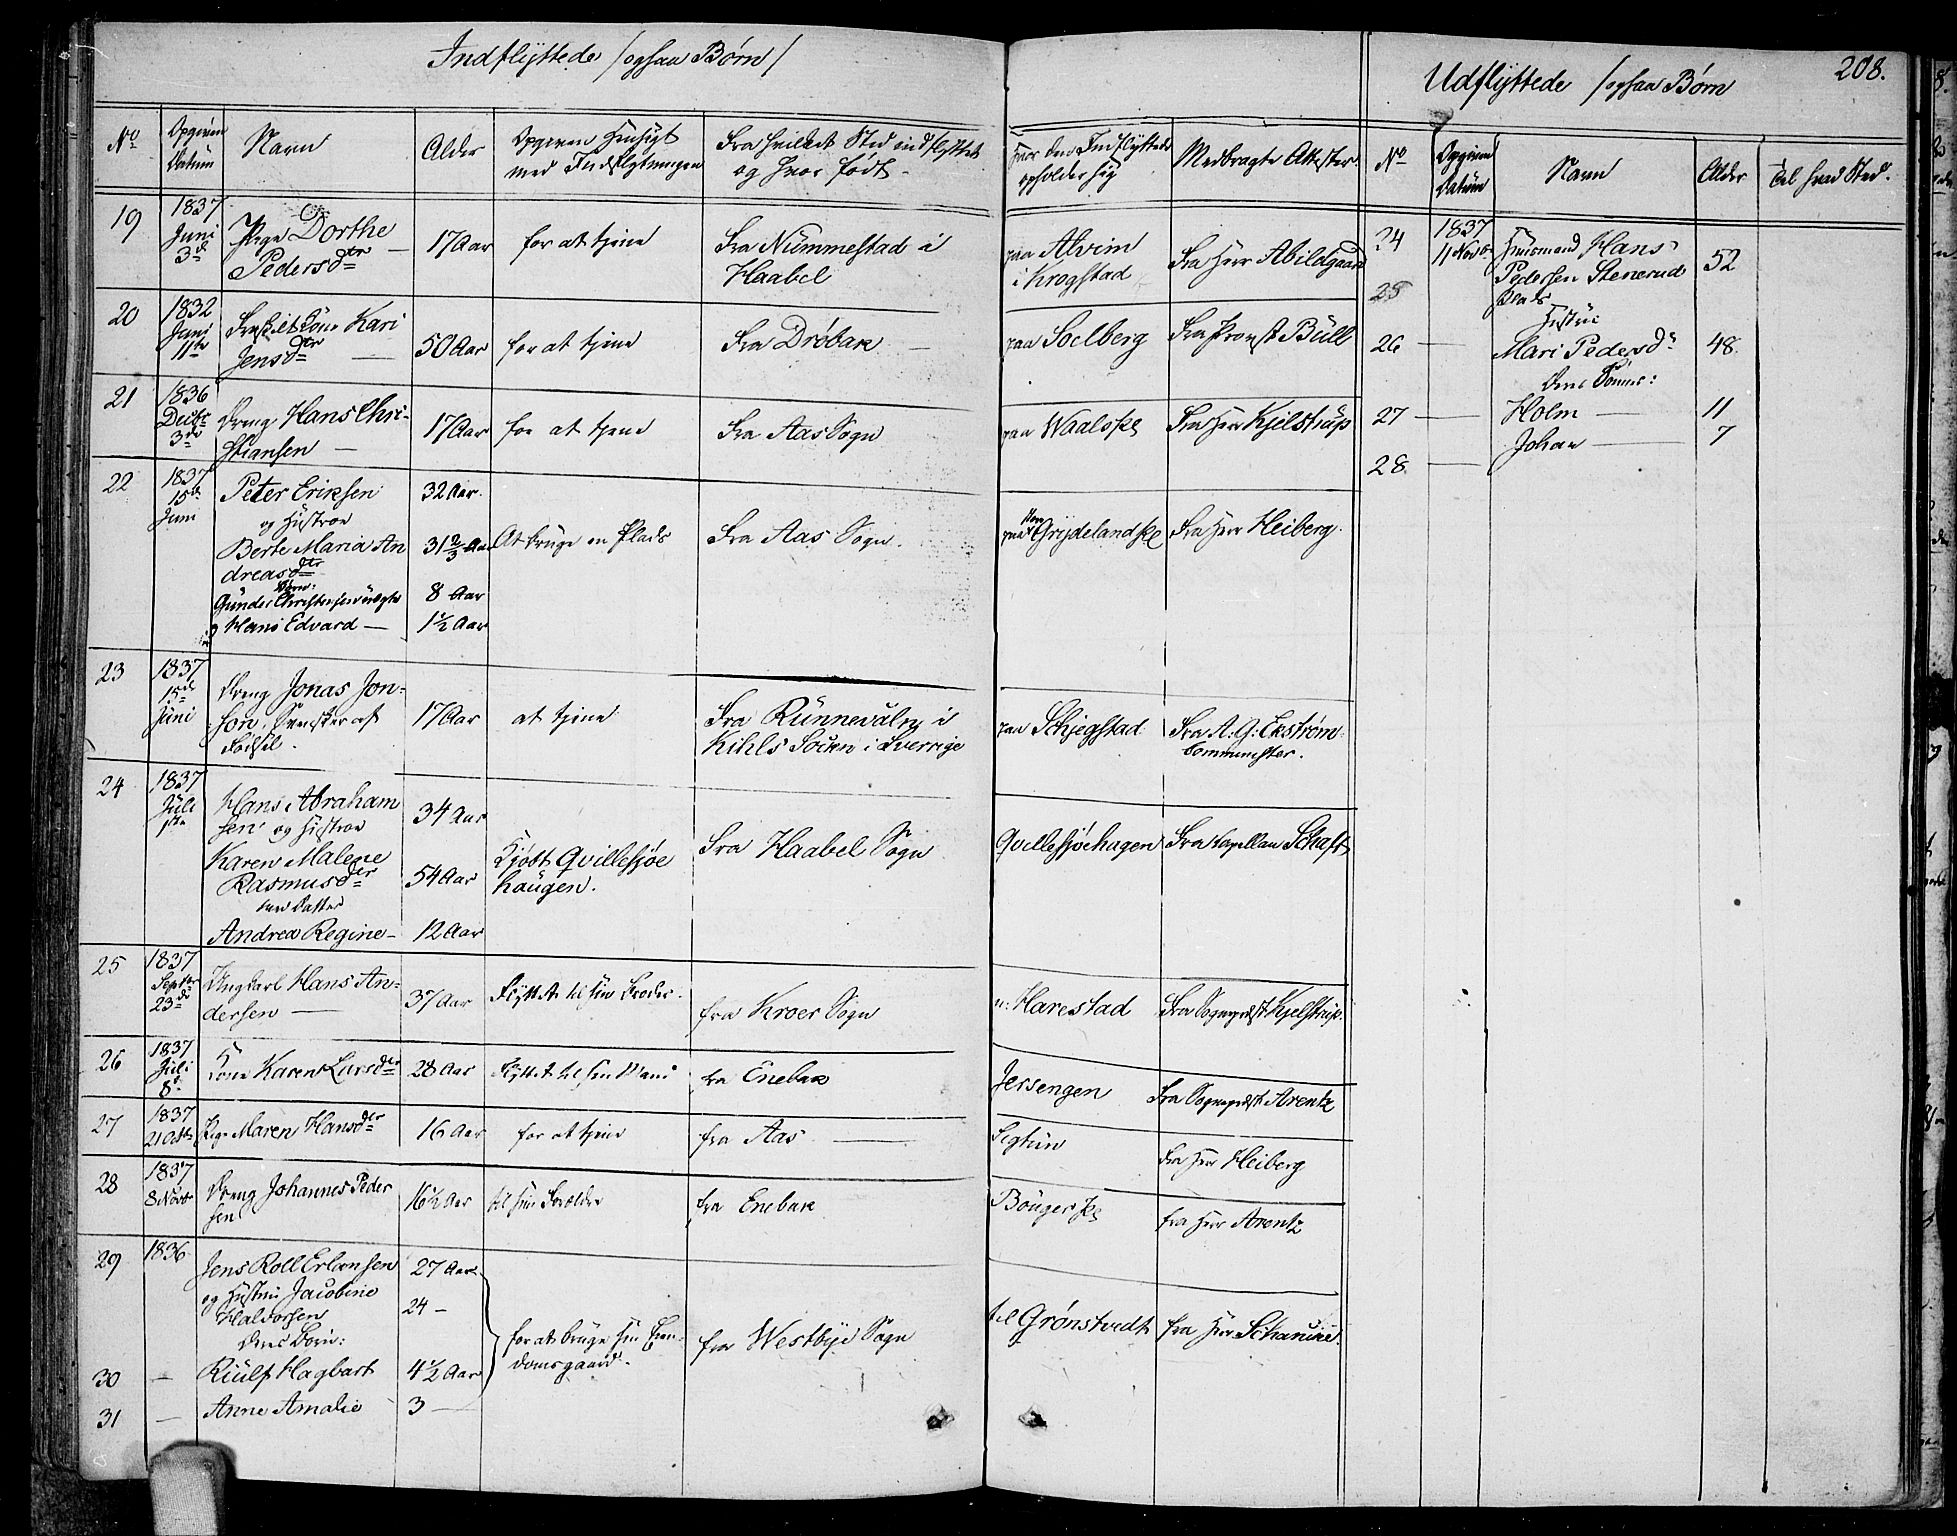 Indflyttede /ogsaa Børn/
Udflyttede /ogsaa Børn
208.
No
Opgiven Datum
Navn
Alder
Opgiven Hensigt
med Indflytningen
Fra hvilket Sted indflyttet
og hvor født.
hvor den Indflyttede
opholder sig
Medbragte Attester
No
Opgiven Datum
Navn
Alder
Til hvad Sted.
19
1837
Juni
3d
Pige Dorthe
Pedersdtr
17 Aar
for at tjene
Fra Nummestad i
Haabel
paa Alvim
i Krogstad
Fra Herr Abildgaard
20
1832
Juni
11te
Kari
Jensdtr
50 Aar
for at tjene
Fra Drøbak
paa Soelberg
Fra Provst Bull
21
1836
Decbr
3die
Dreng Hans Chri-
stiansen
17 Aar
for at tjene
Fra Aas Sogn
paa Waalspl
Fra Herr Kjelstrup
22
1837
15de
Juni
Peter Eriksen
og Hustrue
Berte Maria An
dreasdtr
Børn:
Gunder Christensen uægte
Hans Edvard
32 Aar
31 2/3 Aar
8 Aar
1½ Aar
At bruge en Plads
Fra Aas Sogn.
paa Grydelandspl
Fra Herr Heiberg.
23
1837
15de
Juni
Dreng Jonas Jon-
son, Svensker af
Fødsel.
17 Aar
at tjene
Fra Runnevaln i
Kihls Socken i Sverrige
paa Schjegstad
Fra A. G. Ekstrøm
Comminister.
24
1837
Juli
1ste
Hans Abraham
sen og Hustrue
Karen Malene
Rasmusdtr
med Datter
Andrea Regine
34 Aar
54 Aar
12 Aar
Kjøbt Qvillesjøe
haugen.
Fra Haabel Sogn
Qvillesjøehagen
Fra Kapellan Schaft
25
1837
Septbr
23de
Ungkarl Hans An-
dersen
37 Aar
Flyttet til sin Broder.
fra Kroer Sogn
n: Harestad
Fra Sogneprest Kjelstrup.
26
1837
Juli
8de
Kone Karen Larsdtr
28 Aar
Flyttet til sin Mand
fra Enebak
Jersengen
Fra Sogneprest Arentz
27
1837
21 Octb
Pige Maren Hansdtr
16 Aar
for at tjene
fra Aas
Sigtun
Fra Herr Heiberg
28
1837
8 Novbr
Dreng Johannes Peder
sen
16½ Aar
til sine Forældre
fra Enebak
Bøugerspl
fra Herr Arentz
29
1836
Jens Roll Erlansen
og Hustrue Jacobine
Haldorsen
Deres Børn:
27 Aar
24
for at bruge sin Eien-
domsgaard.
fra Westbye Sogn
til Grønstvedt
fra Herr
30
Riulf Hagbart
4½ Aar
31
Anne Amalie
3
24
1837
11 Novbr
Huusmand Hans
Pedersen Stenerud
Plads
52
25
Hustrue
26
Mari Pedersdr
48.
Deres Sønner:
27
Holm
11
Johan
7
28